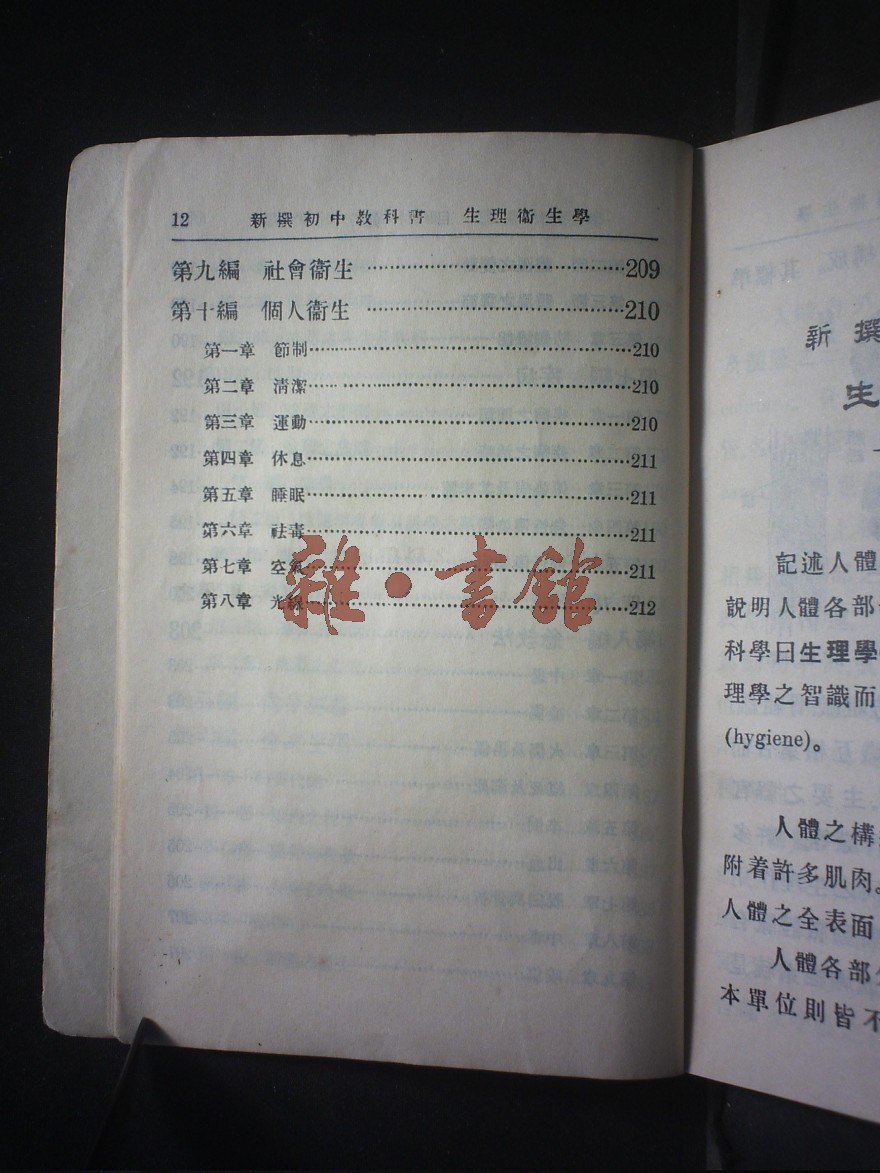 12 新撰初中教科書 生理衞生學
第九編 社會衞生 ……209
第十編 個人衞生 ……210
第一章 節制……210
第二章 清潔……210
第三章 運動……210
第四章 休息……211
第五章 睡眠……211
第六章 祛毒……211
第七章 空氣……211
第八章 光線……212
雜·書館
新撰
生
記述人體
說明人體各部
科學曰生理學
理學之智識而
(hygiene)。
人體之構
附着許多肌肉。
人體之全表面
人體各部
本單位則皆不
其標準